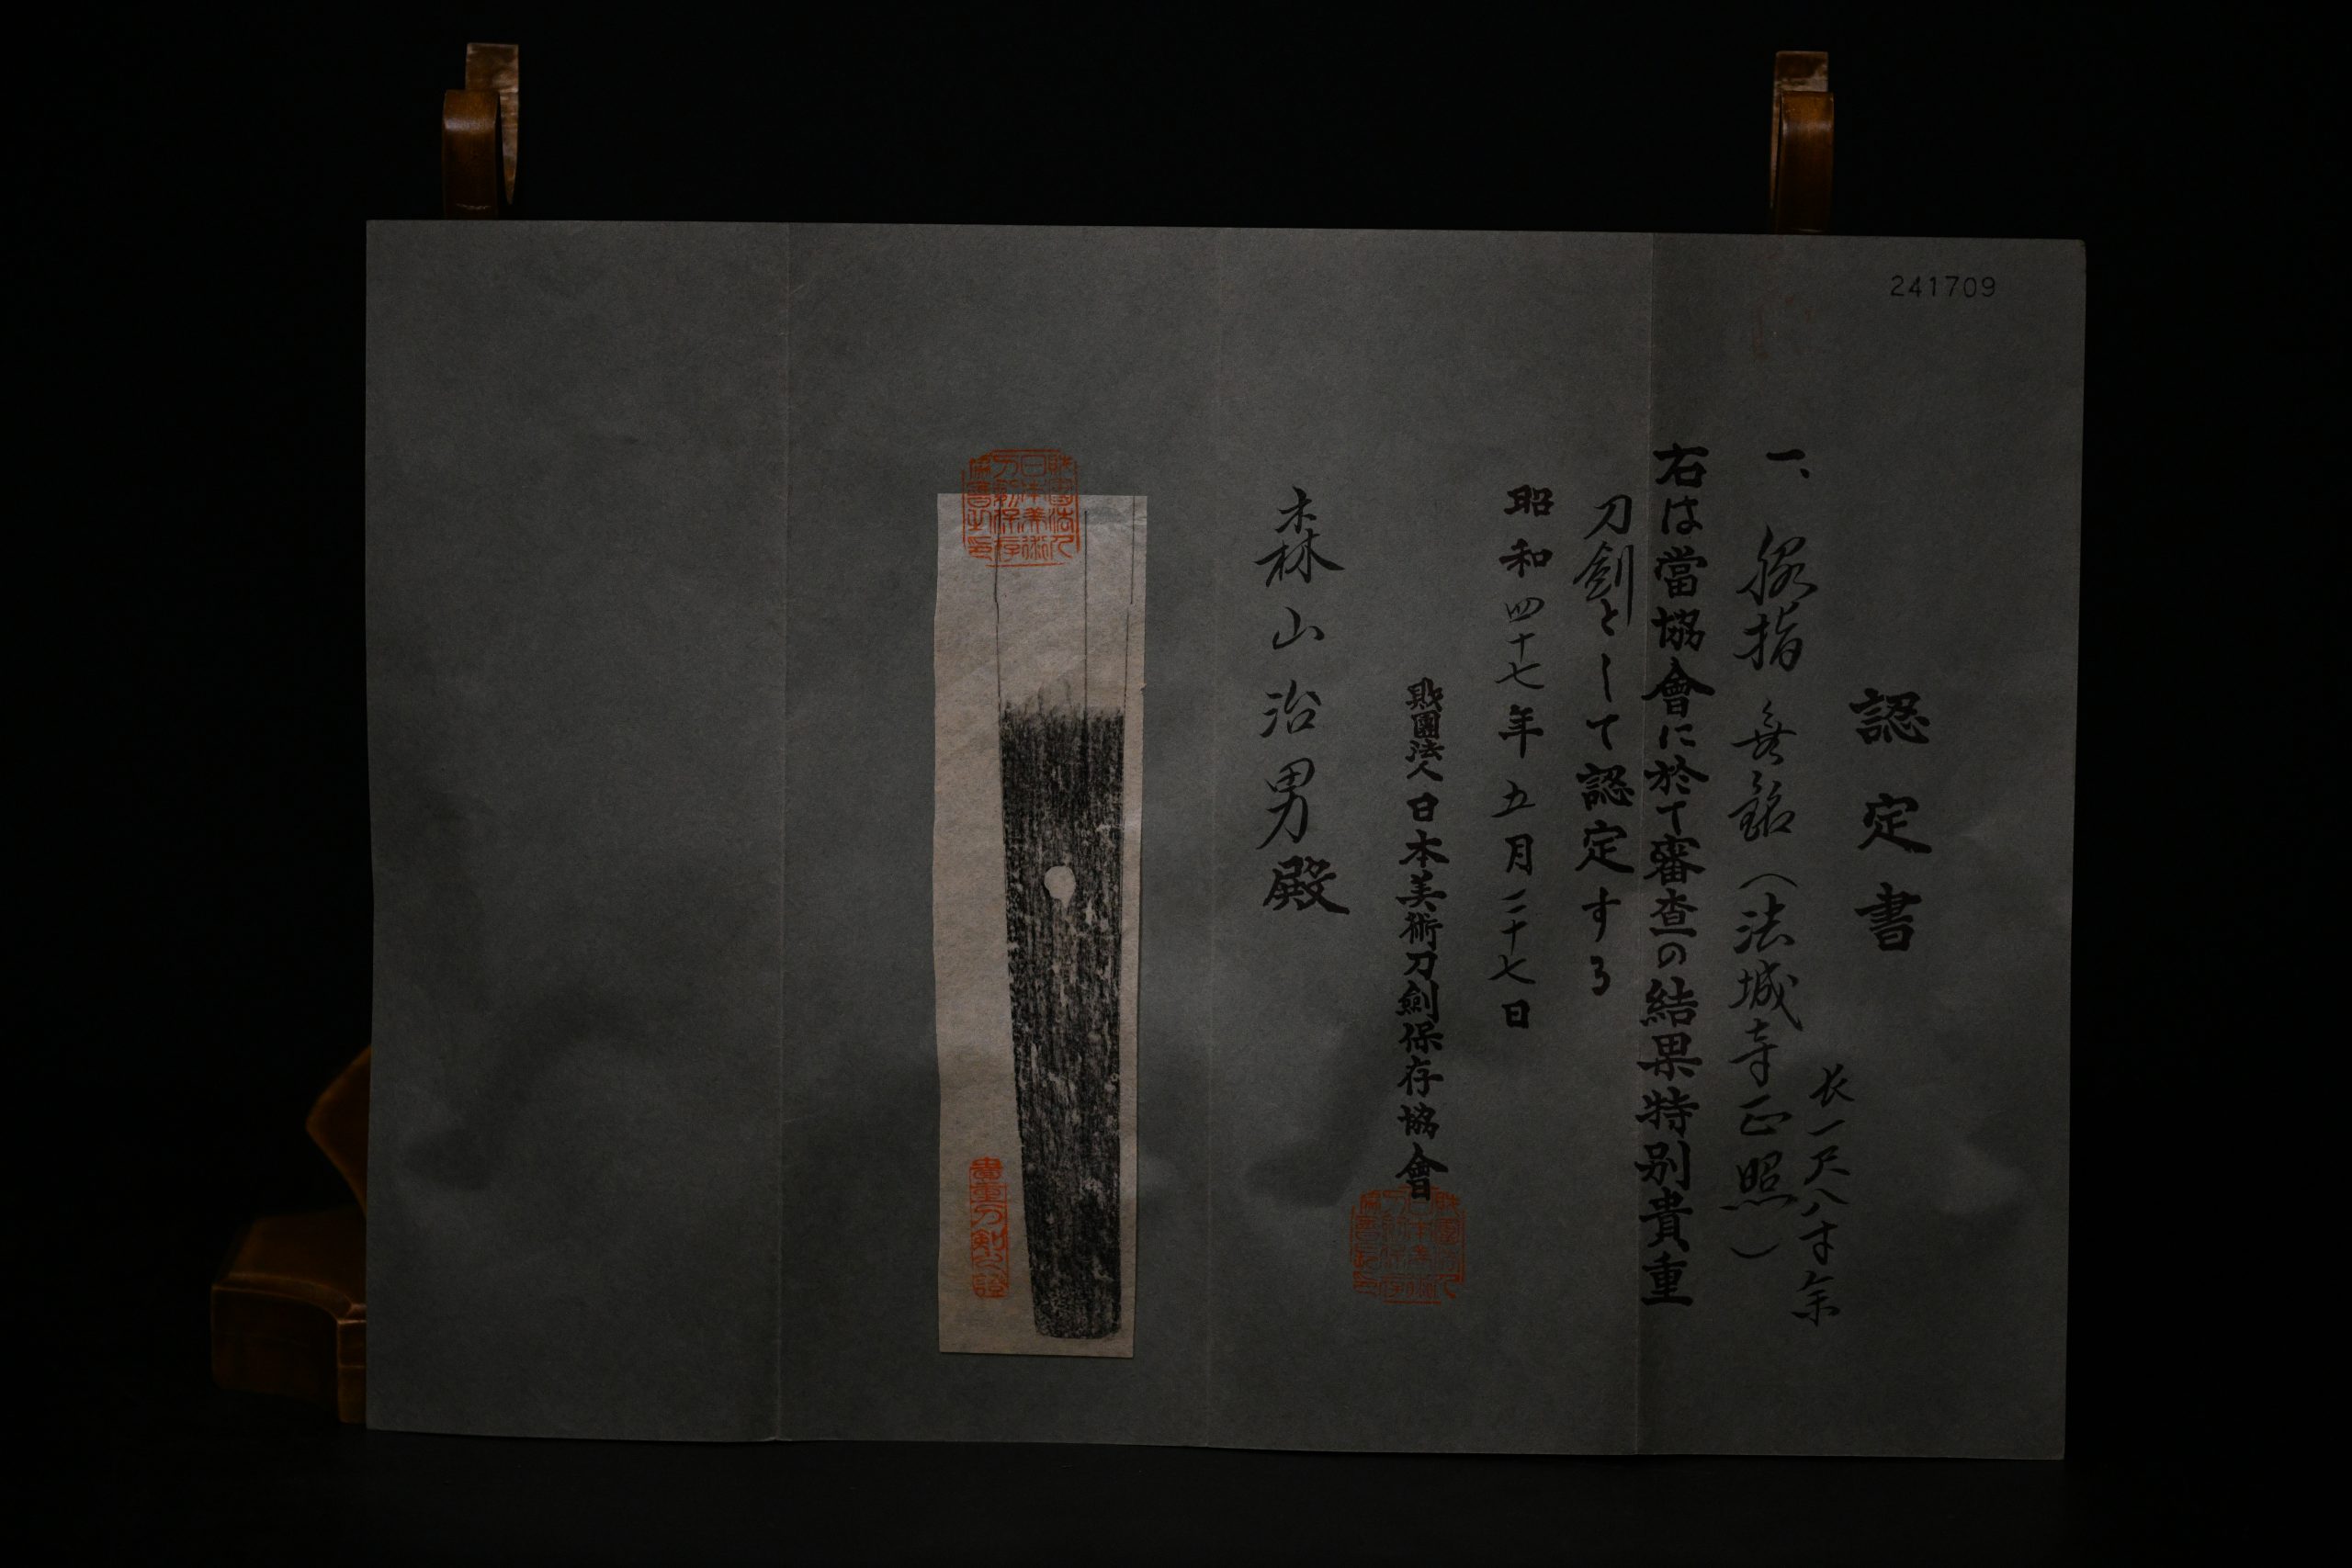 241709
認定書
一、脇指 無銘（法城寺正照）
長一尺八寸余
右は當協會に於て審査の結果特別貴重
刀劍として認定する
昭和四十七年五月二十七日
財團法人日本美術刀劍保存協會
森山治男殿
財團法人日本美術刀剣保存協會之印
貴重刀剣之證